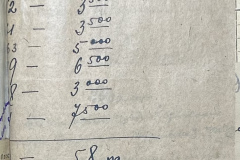 2 — 3 500
1 — 3 500
3 — 5 000
9 — 6 500
8 — 3 000
— 7 500
58 m